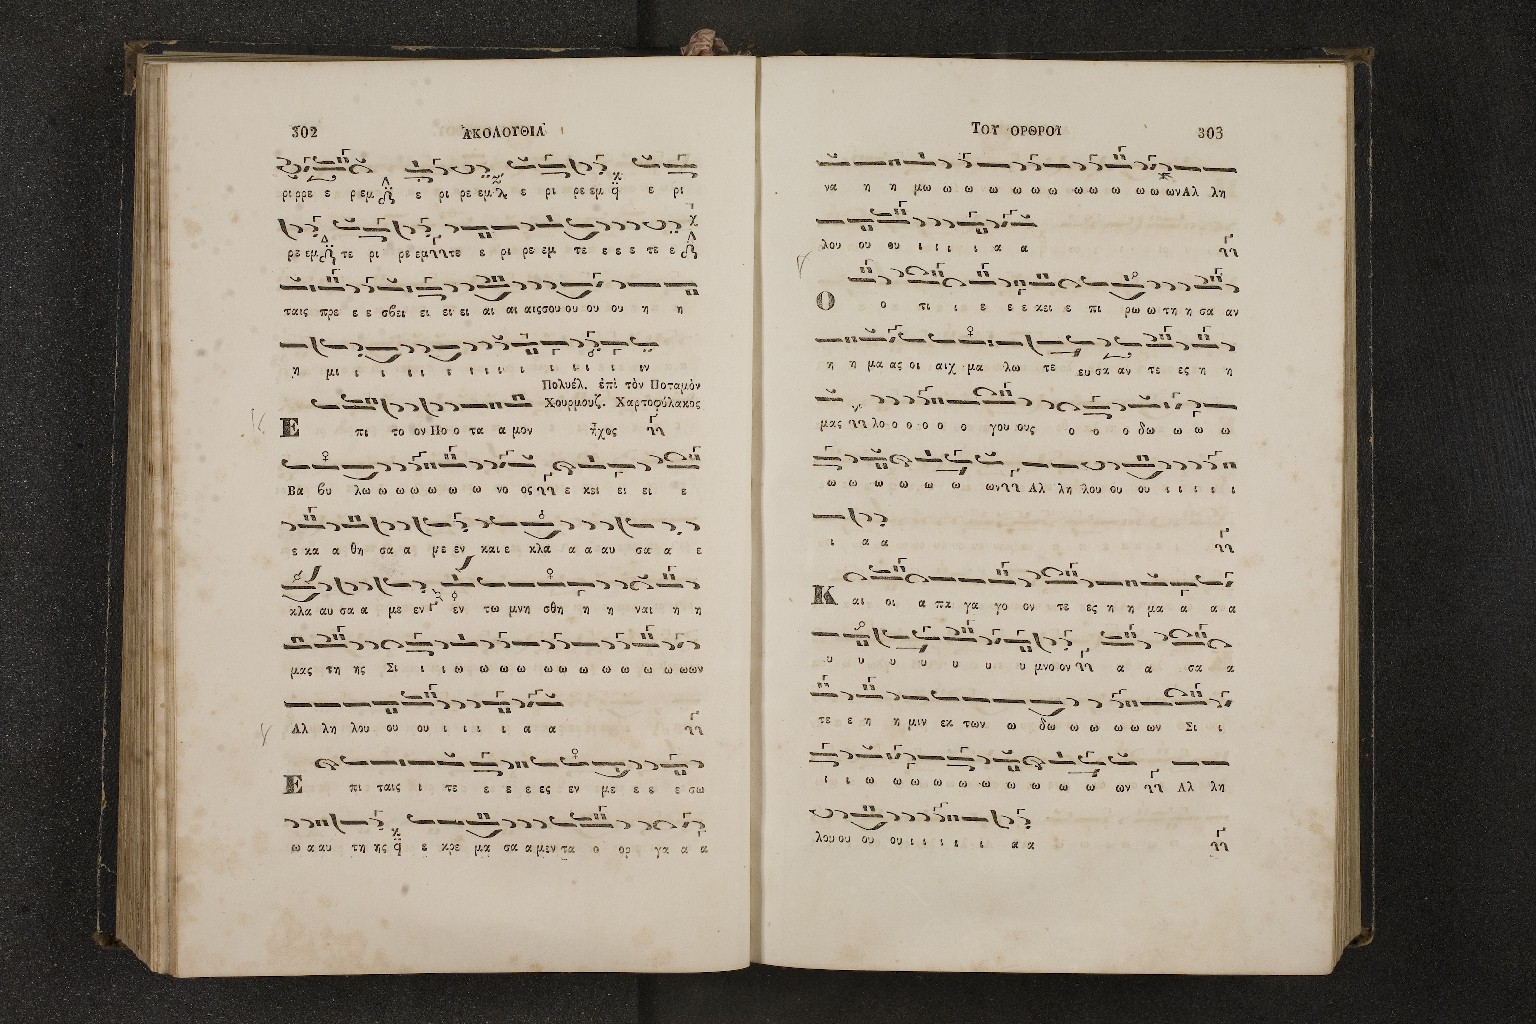 302 ἈΚΟΛΟΥΘΙΑ
ρι ρρε ε ρ εμ ε ρι ρε εμ ε ρι ρε εμ ε ρι
ρε εμ τε ρι ρε εμ τε ε ρι ρε εμ τε ε ε ε τε ε
ταις πρε ε ε σβει ει ει ει αι αι αις σου ου ου ου η η
η μι ι ι ι ι ι ι ι ι ι ι ι ι ιν
Πολυέλ. ἐπὶ τὸν Ποταμὸν
Χουρμουζ. Χαρτοφύλακος
Ε πι το ον Πο ο τα α μον ἦχος
Βα βυ λω ω ω ω ω ω ω νο ος ε κει ει ει ε
ε κα α θη σα α με εν και ε κλα α α αυ σα α ε
κλα αυ σα α με εν εν τω μνη σθη η η ναι η η
μας τη ης Σι ι ι ω ω ω ω ω ω ω ω ω ω ω ω ω ων
Αλ λη λου ου ου ι ι ι ι α α
Ε πι ταις ι τε ε ε ε ες εν με ε ε ε σω
ω α αυ τη ης ε κρε μα σα α μεν τα ο ορ γα α α
ΤΟΥ ΟΡΘΡΟΥ 303
να η η μω ω ω ω ω ω ω ω ω ω ω ω ων Αλ λη
λου ου ου ι ι ι ι α α
Ο ο τι ι ε ε ε κει ε πι ρω ω τη η σα αν
η η μα ας οι αιχ μα λω τε ευ σα αν τε ες η η
μας λο ο ο ο ο ο γου ους ο ο ο δω ω ω ω
ω ω ω ω ω ω ων Αλ λη λου ου ου ι ι ι ι ι
ι α α
Κ αι οι α πα γα γο ον τε ες η η μα α α α
υ υ υ υ υ υ υ μνο ον α α σα α
τε ε η η μιν εκ των ω δω ω ω ω ω ων Σι ι
ι ι ω ω ω ω ω ω ω ω ω ω ων Αλ λη
λου ου ου ου ι ι ι ι ι α α